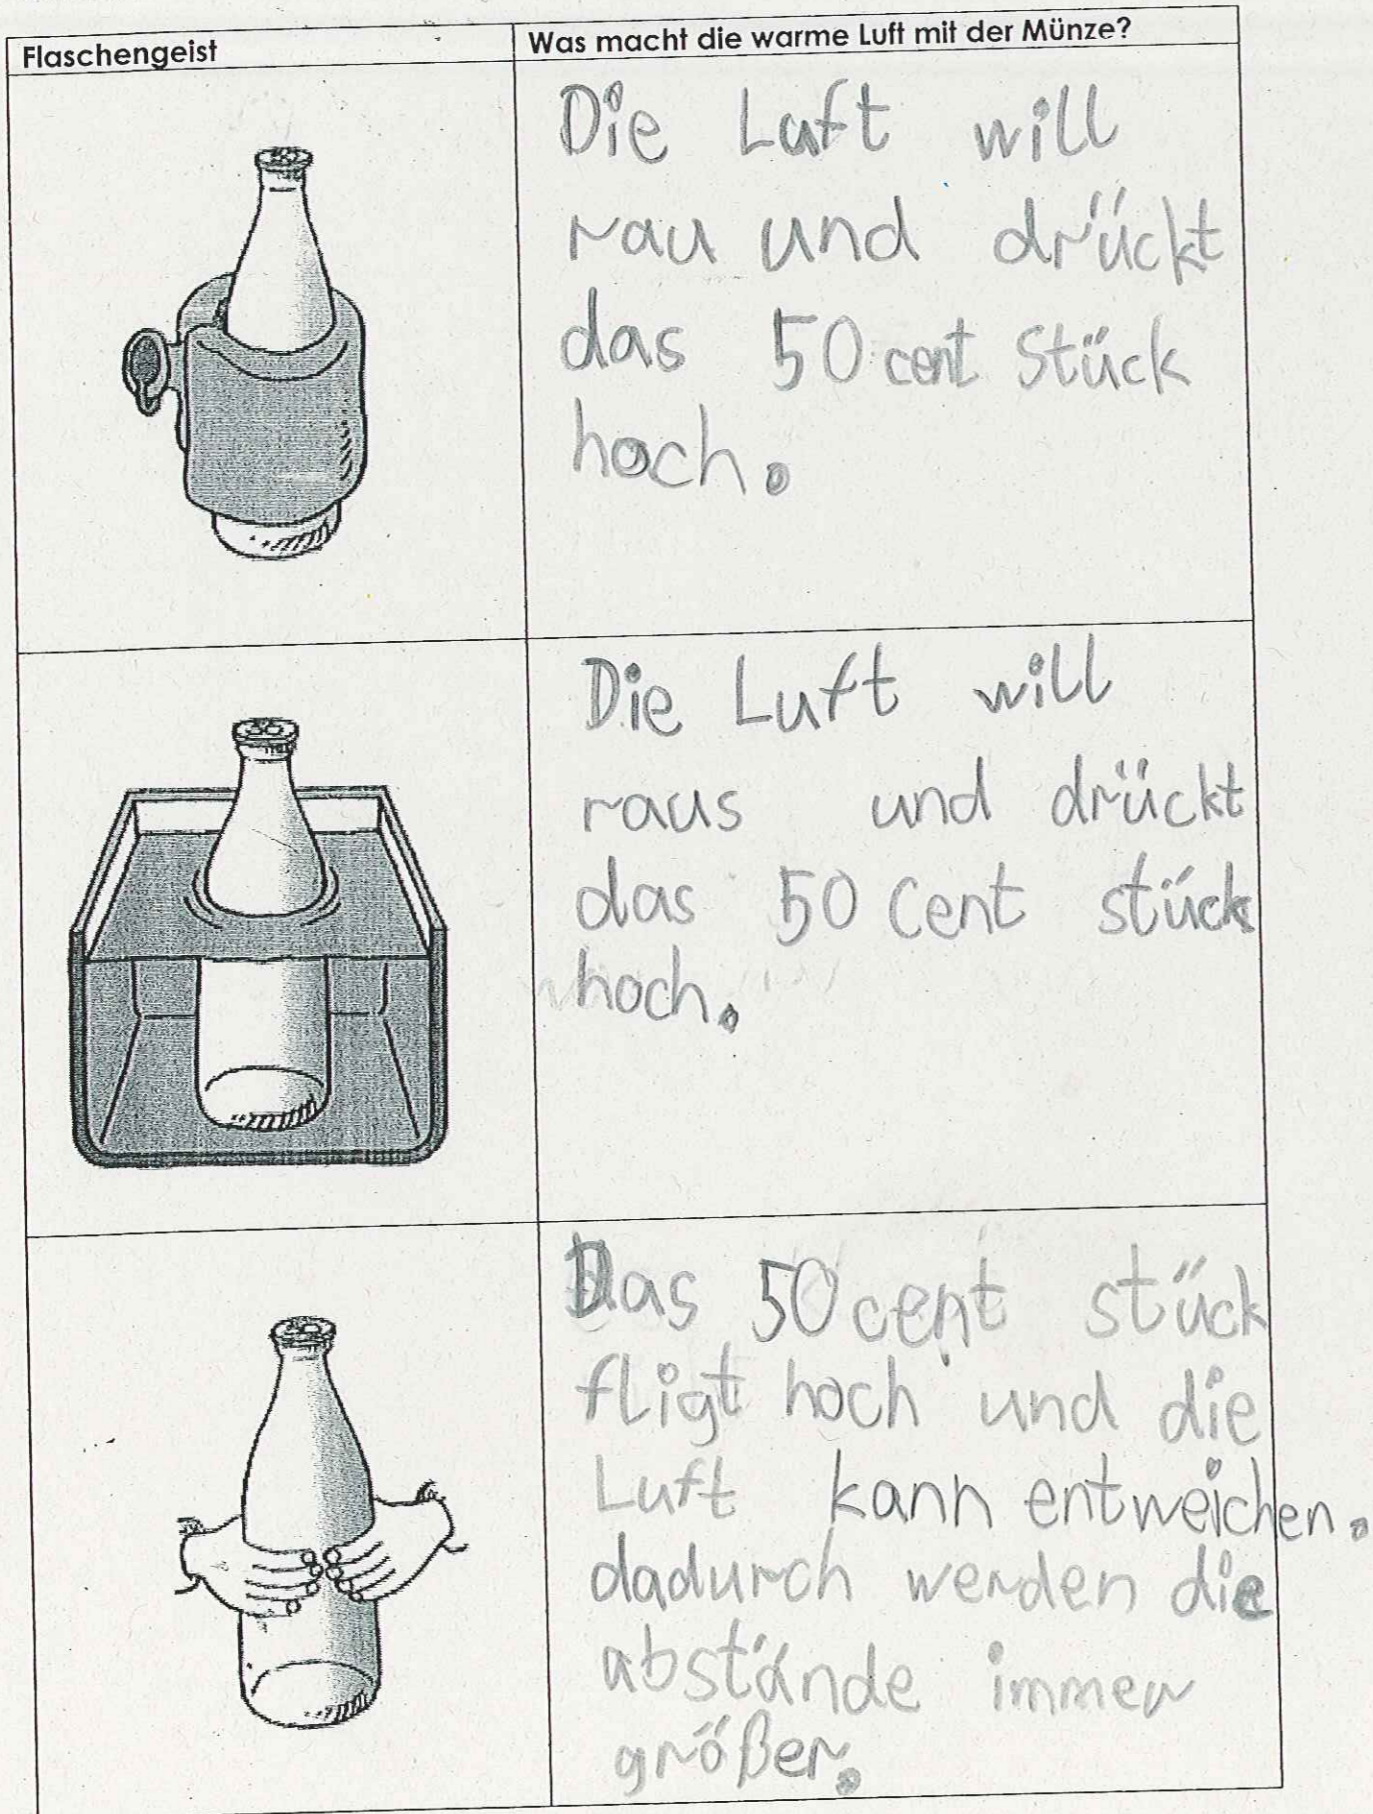 Flaschengeist
Was macht die warme Luft mit der Münze?
Die Luft will
rau und drückt
das 50 cent Stück
hoch.
Die Luft will
raus und drückt
das 50 Cent stück
hoch.
Das 50 cent stück
fligt hoch und die
Luft kann entweichen.
dadurch werden die
abstände immer
größer.